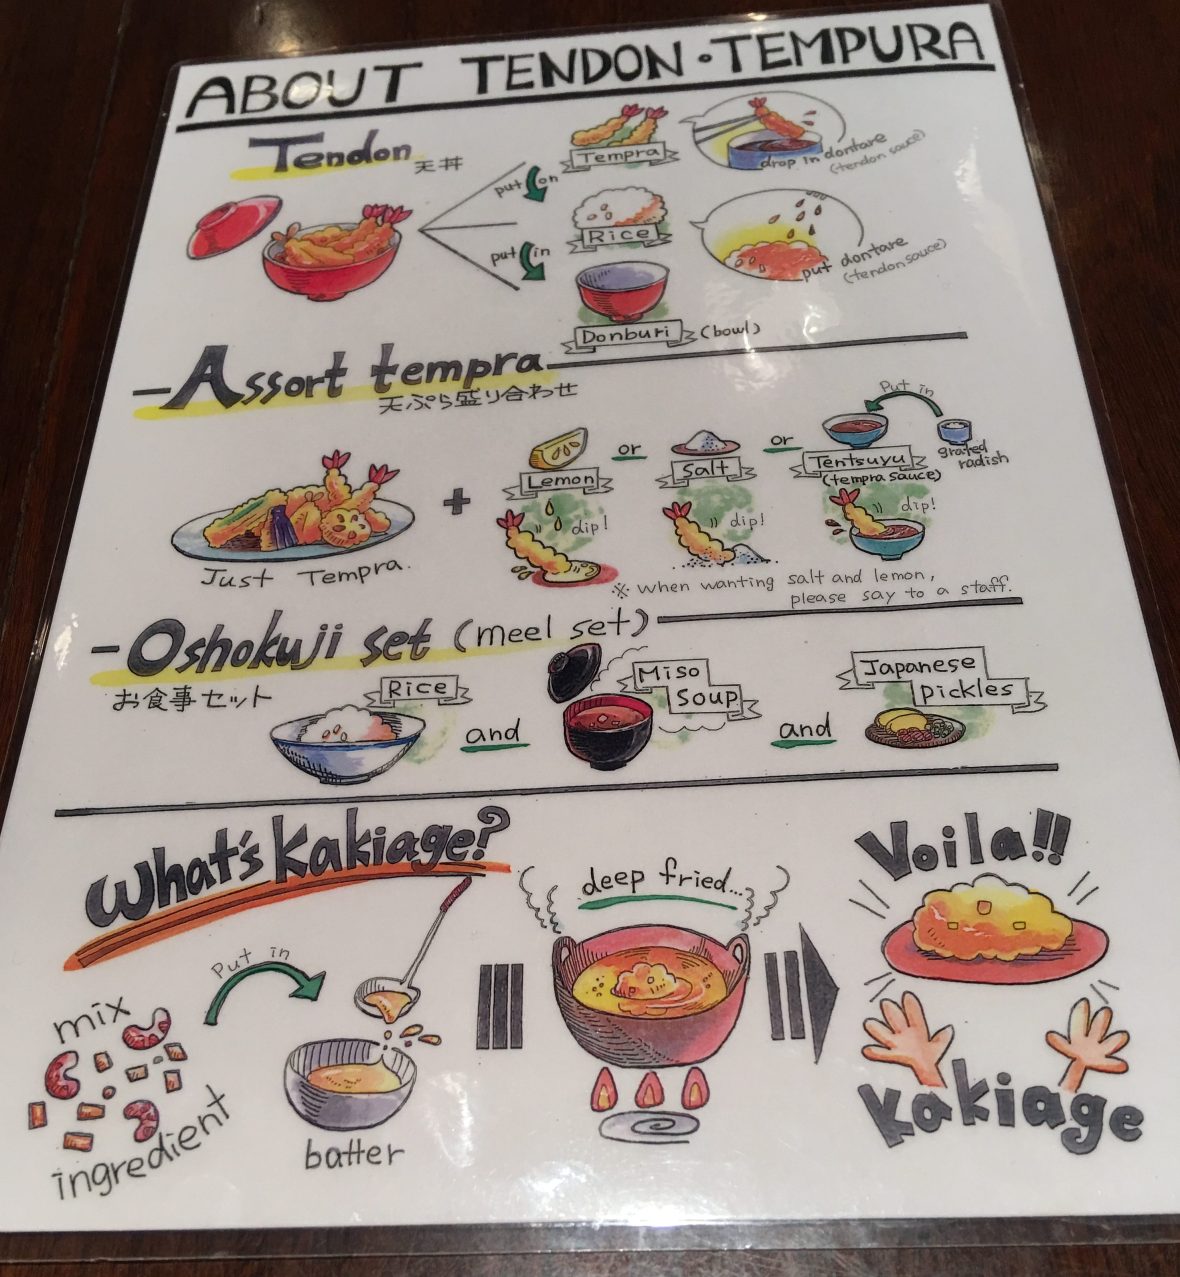 ABOUT TENDON・TEMPURA
Tendon 天丼
Tempra
put on
drop in dontare
(tendon sauce)
Rice
put in
put dontare
(tendon sauce)
Donburi (bowl)
Assort tempra
天ぷら盛り合わせ
Just Tempra.
+
Lemon
or
Salt
or
Tentsuyu
(tempra sauce)
Put in
grated
radish
dip!
dip!
dip!
※ when wanting salt and lemon,
please say to a staff.
Oshokuji set (meel set)
お食事セット
Rice
and
Miso
Soup
and
Japanese
pickles
What's Kakiage?
mix
ingredient
Put in
batter
deep fried...
Voila!!
Kakiage